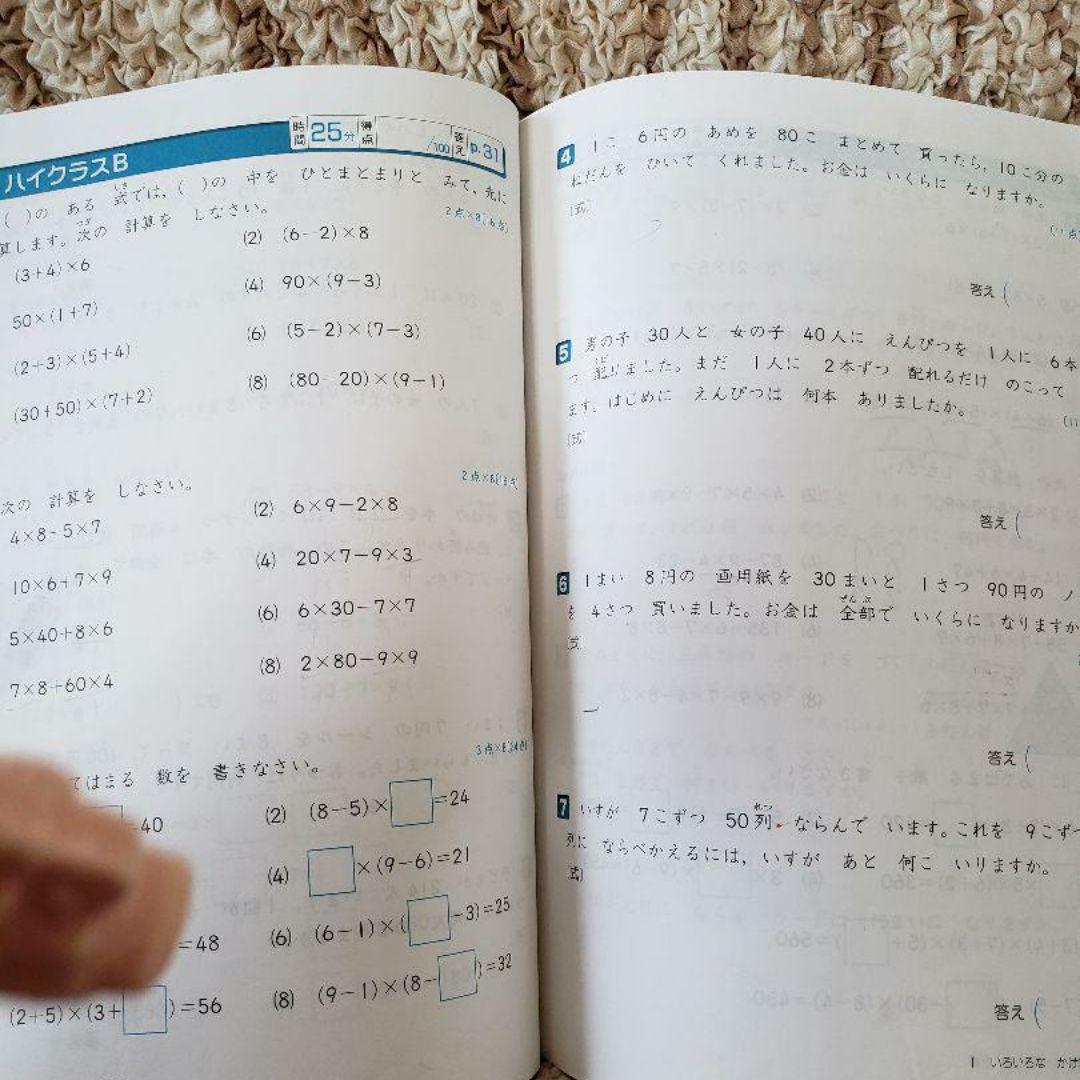 ハイクラスB
時間 25分 得点 /100 答え p.31
( )の ある 式では，( )の 中を ひとまとまりと みて，先に
算します。次の 計算を しなさい。
2点×8(16点)
(3+4)×6
(2) (6-2)×8
50×(1+7)
(4) 90×(9-3)
(2+3)×(5+4)
(6) (5-2)×(7-3)
(30+50)×(7+2)
(8) (80-20)×(9-1)
次の 計算を しなさい。
4×8-5×7
(2) 6×9-2×8
10×6+7×9
(4) 20×7-9×3
5×40+8×6
(6) 6×30-7×7
7×8+60×4
(8) 2×80-9×9
てはまる 数を 書きなさい。
=40
(2) (8-5)×□=24
(4) □×(9-6)=21
=48
(6) (6-1)×(□-3)=25
(2+5)×(3+□)=56
(8) (9-1)×(8-□)=32
4 1こ 6円の あめを 80こ まとめて 買ったら，10こ分の
ねだんを ひいて くれました。お金は いくらに なりますか。
(式)
答え(
5 男の子 30人と 女の子 40人に えんぴつを 1人に 6本
つ 配りました。まだ 1人に 2本ずつ 配れるだけ のこって
ます。はじめに えんぴつは 何本 ありましたか。
(式)
答え(
6 1まい 8円の 画用紙を 30まいと 1さつ 90円の ノ
を 4さつ 買いました。お金は 全部で いくらに なりますか
答え(
7 いすが 7こずつ 50列 ならんで います。これを 9こずつ
列に ならべかえるには，いすが あと 何こ いりますか。
答え(
1 いろいろな かけ